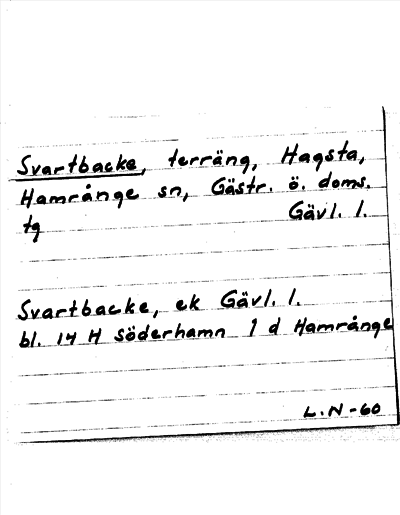 Svartbacke, terräng, Hagsta,
Hamrånge sn, Gästr. ö. doms.
tg Gävl. l.
Svartbacke, ek Gävl. l.
bl. 14 H Söderhamn 1 d Hamrånge
L.N-60